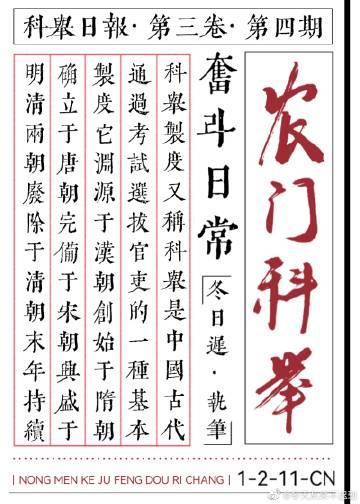 科舉日報·第三卷·第四期
农门科举
奮斗日常
冬日遲·執筆
科舉製度又稱科舉是中國古代
通過考試選拔官吏的一種基本
製度它淵源于漢朝創始于隋朝
確立于唐朝完備于宋朝興盛于
明清兩朝廢除于清朝末年持續
NONG MEN KE JU FENG DOU RI CHANG
1-2-11-CN